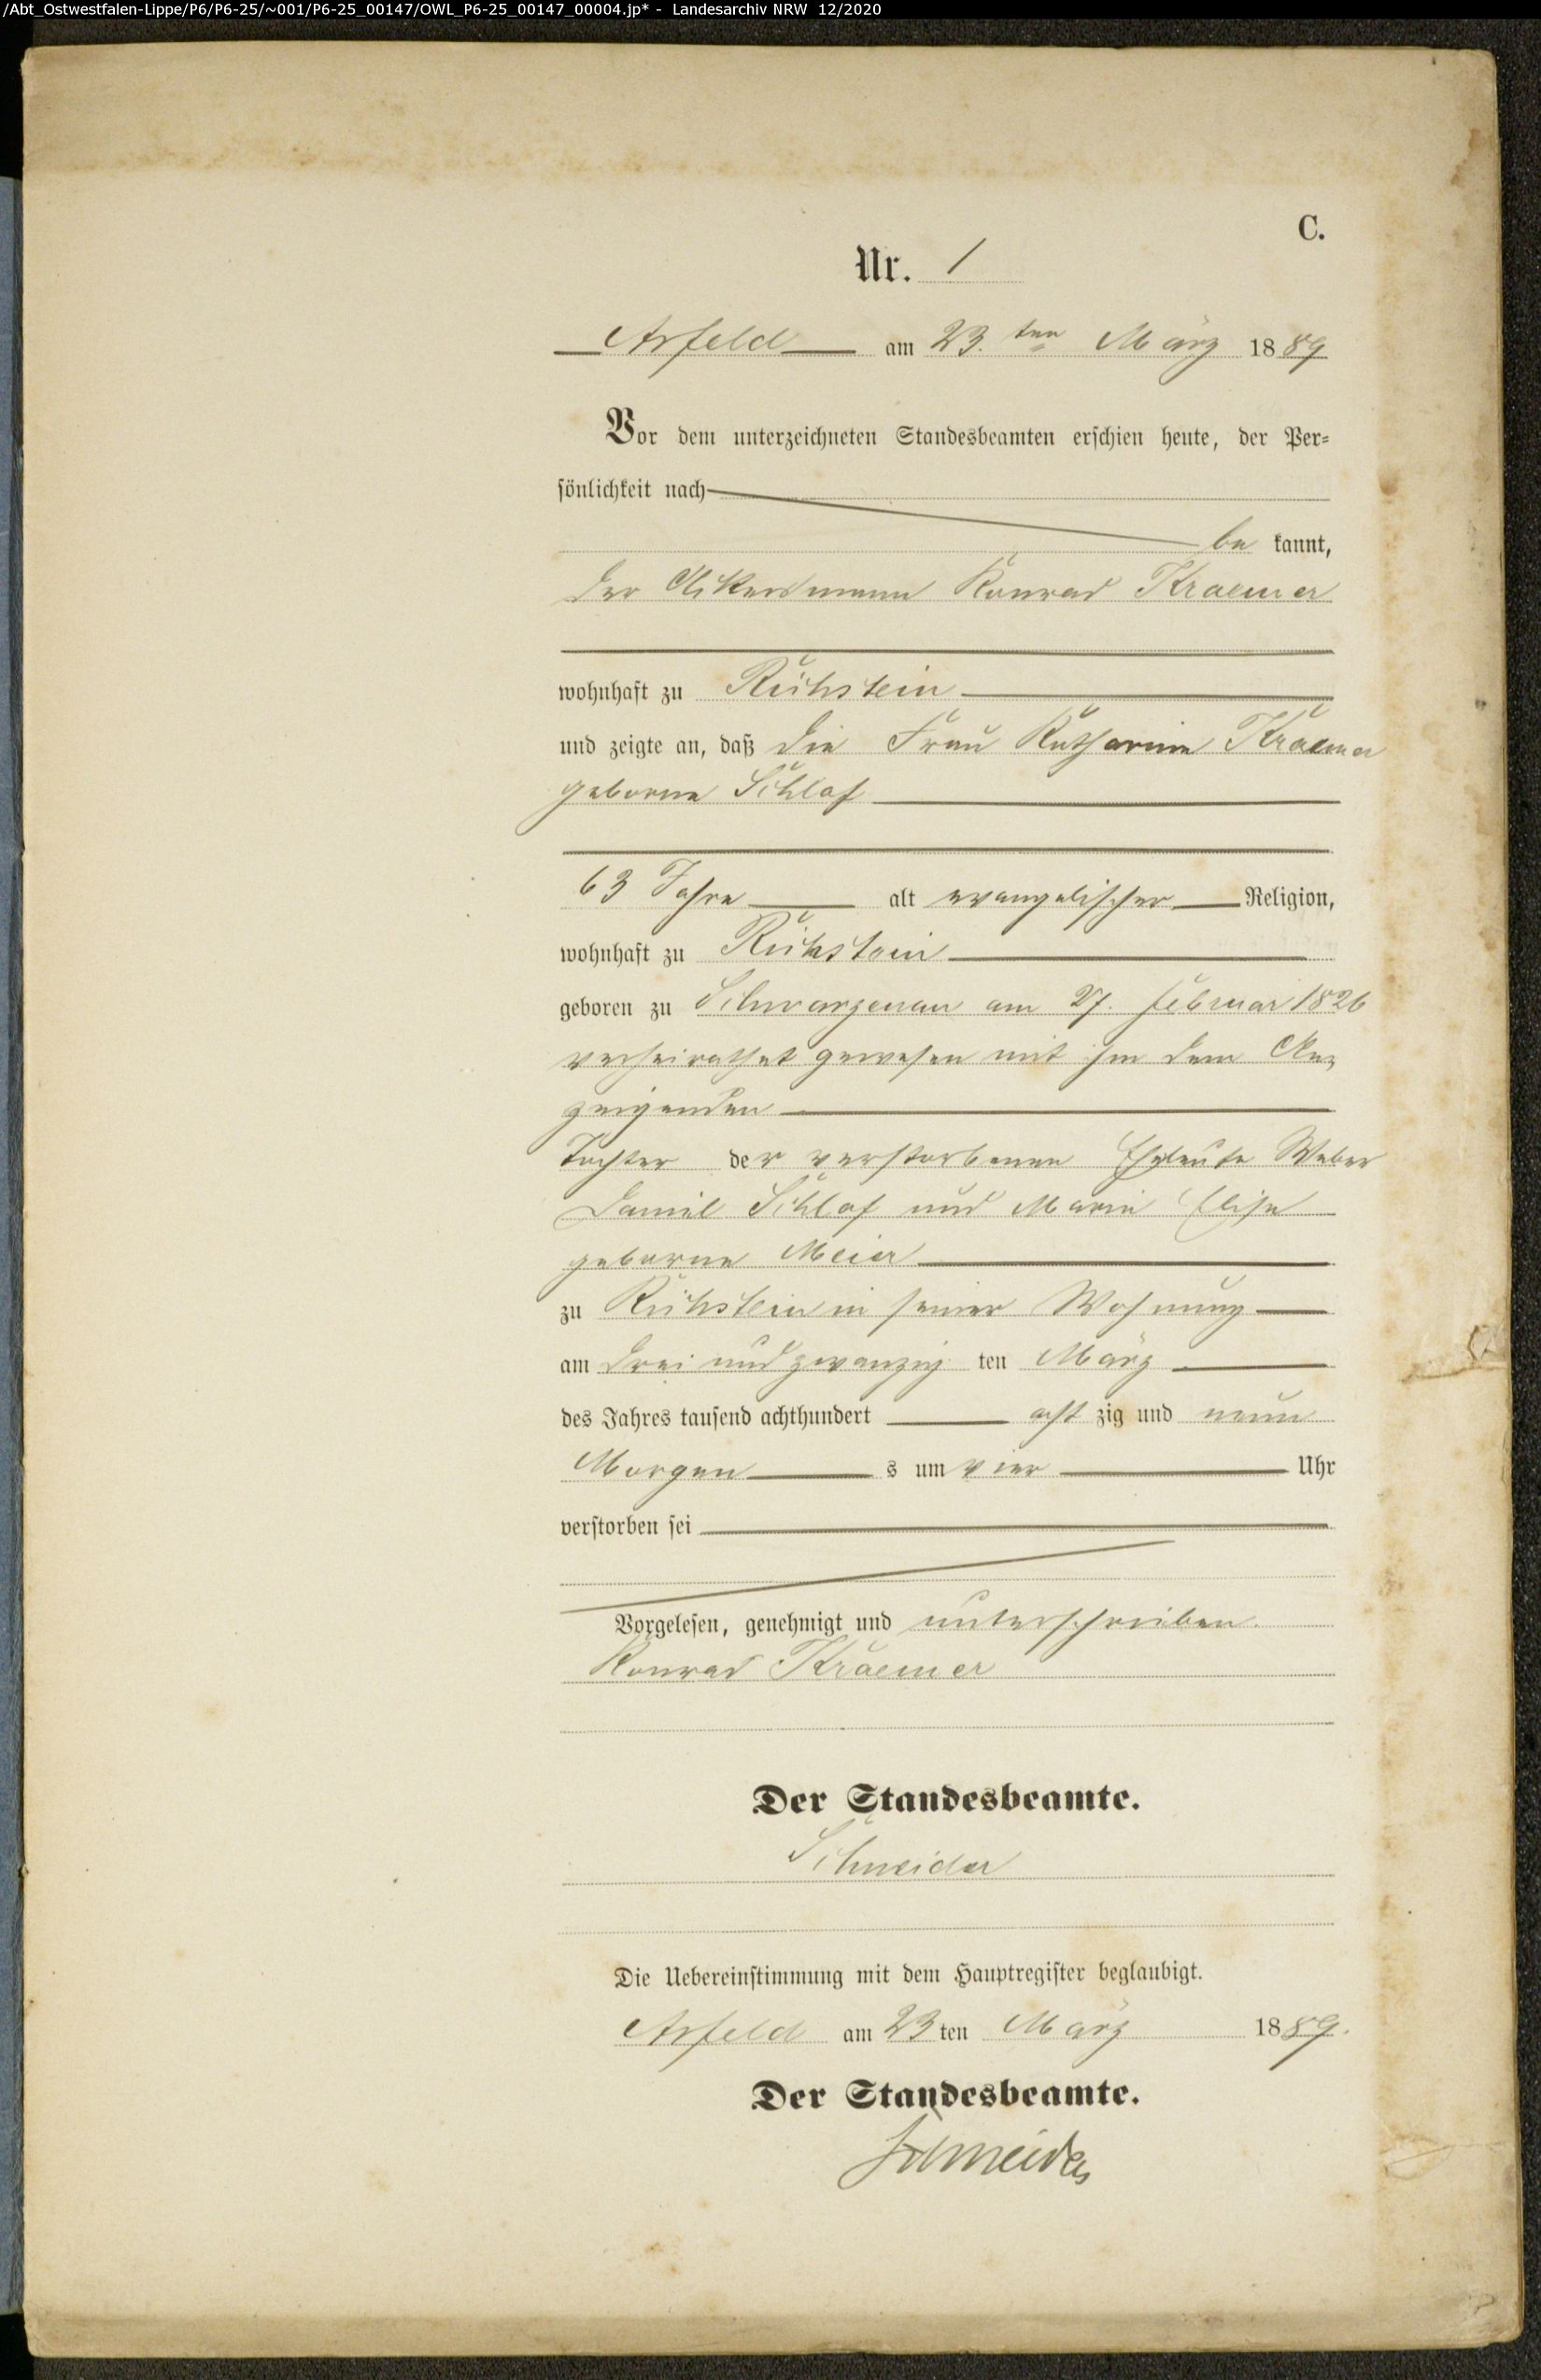 /Abt_Ostwestfalen-Lippe/P6/P6-25/~001/P6-25_00147/OWL_P6-25_00147_00004.jp* - Landesarchiv NRW 12/2020
C.
Nr. 1
Arfeld am 23.ten März 1889
Vor dem unterzeichneten Standesbeamten erschien heute, der Per=
sönlichkeit nach
be kannt,
der Ackersmann Konrad Kraemer
wohnhaft zu Richstein
und zeigte an, daß die Frau Katharine Kraemer
geborne Schlaf
63 Jahre alt evangelischer Religion,
wohnhaft zu Richstein
geboren zu Schwarzenau am 27. Februar 1826
verheirathet gewesen mit ihm dem An=
zeigenden
Tochter der verstorbenen Eheleute Weber
Daniel Schlaf und Marie Elise
geborne Meier
zu Richstein in seiner Wohnung
am drei und zwanzig ten März
des Jahres tausend achthundert acht zig und neun
Morgen s um vier Uhr
verstorben sei
Vorgelesen, genehmigt und unterschrieben.
Konrad Kraemer
Der Standesbeamte.
Schneider
Die Uebereinstimmung mit dem Hauptregister beglaubigt.
Arfeld am 23 ten März 1889.
Der Standesbeamte.
Schneider